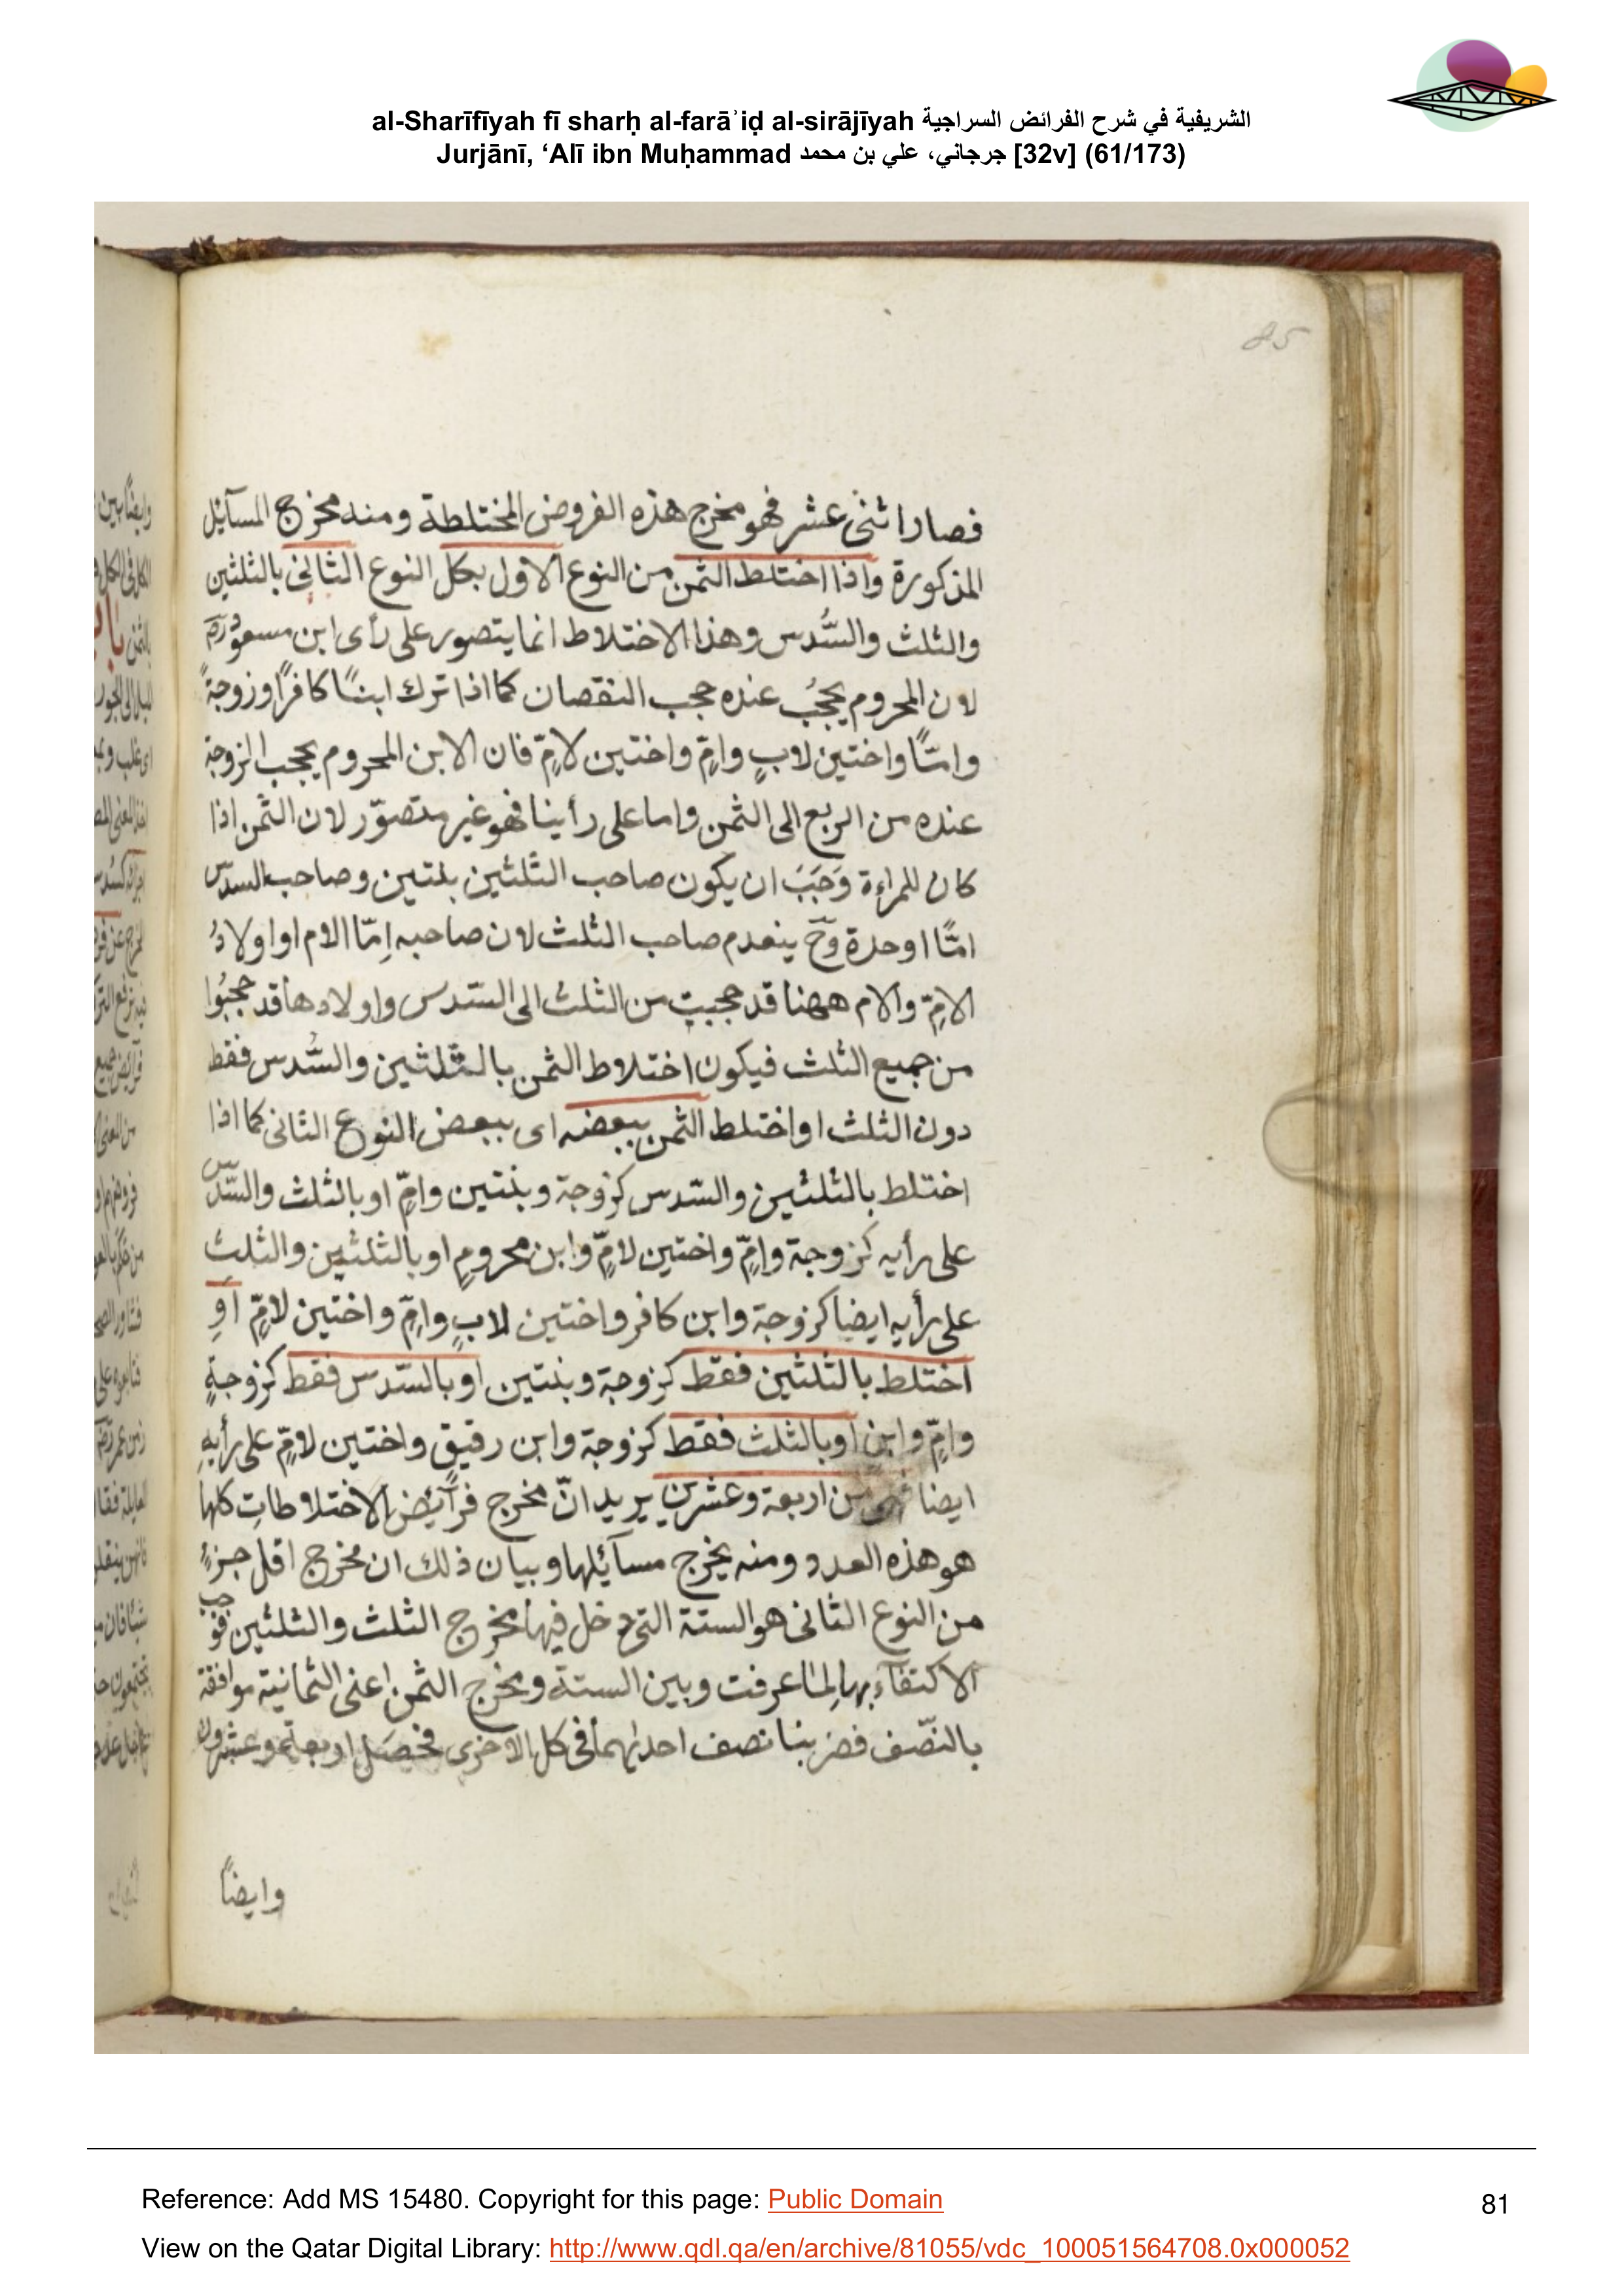 al-Sharīfīyah fī sharḥ al-farāʾiḍ al-sirājīyah الشريفية في شرح الفرائض السراجية
Jurjānī, ‘Alī ibn Muḥammad جرجاني، علي بن محمد [32v] (61/173)
85
فصارا ثنى عشر فهو مخرج هذه الفروض المختلطة ومنه مخرج المسآئل
المذكورة واذا اختلط الثمن من النوع الاول بكل النوع الثانى بالثلثين
والثلث والسُّدس وهذا الاختلاط انما يتصور على رأى ابن مسعود رَضَ
لان المحروم يحجُب عنده حجب النقصان كما اذا ترك ابنًا كافرًا وزوجةً
وامًّا واختين لابٍ وامٍّ واختين لامٍّ فان الابن المحروم يحجب الزوجة
عنده من الربع الى الثمن واما على رأينا فهو غير متصوّر لان الثمن اذا
كان للمراءة وَجَبَ ان يكون صاحب الثلثين بنتين وصاحب السدس
امًّا او جدة وحّ ينعدم صاحب الثلث لان صاحبه اِمّا الام او اولادُ
الامِّ والام ههنا قد حجبت من الثلث الى السّدس واولادها قد حجبُوا
من جميع الثلث فيكون اختلاط الثمن بالثلثين والسُّدس فقط
دون الثلث او اختلط الثمن ببعضه اى ببعض النوع الثانى كما اذا
اختلط بالثلثين والسّدس كزوجة وبنتين وامٍّ او بالثلث والسّدس
على رأيه كزوجة وامٍّ واختين لامٍّ وابن محرومٍ او بالثلثين والثلث
على رأيه ايضا كزوجة وابن كافر واختين لابٍ وامٍّ واختين لامٍّ اَوِ
اختلط بالثلثين فقط كزوجة وبنتين او بالسّدس فقط كزوجةٍ
وامٍّ وابنٍ اوبالثلث فقط كزوجة وابن رقيقٍ واختين لامٍّ على رأيهِ
ايضا فهو من اربعة وعشرين يريد انّ مخرج فرآئض الاختلاطاتِ كلها
هو هذه العدد ومنه يخرج مسآئلها وبيان ذلك ان مخرج اقل جزءٍ
من النوع الثانى هو الستة التى دخل فيها مخرج الثلث والثلثين فوجب
الاكتفآءِ بها لما عرفت وبين الستة ومخرج الثمن اعنى الثمانية موافقة
بالنّصف فضربنا نصف احدايهما فى كل الاخرى فحصَل اربعة وعشرون
وايضاً
Reference: Add MS 15480. Copyright for this page: Public Domain
81
View on the Qatar Digital Library: http://www.qdl.qa/en/archive/81055/vdc_100051564708.0x000052